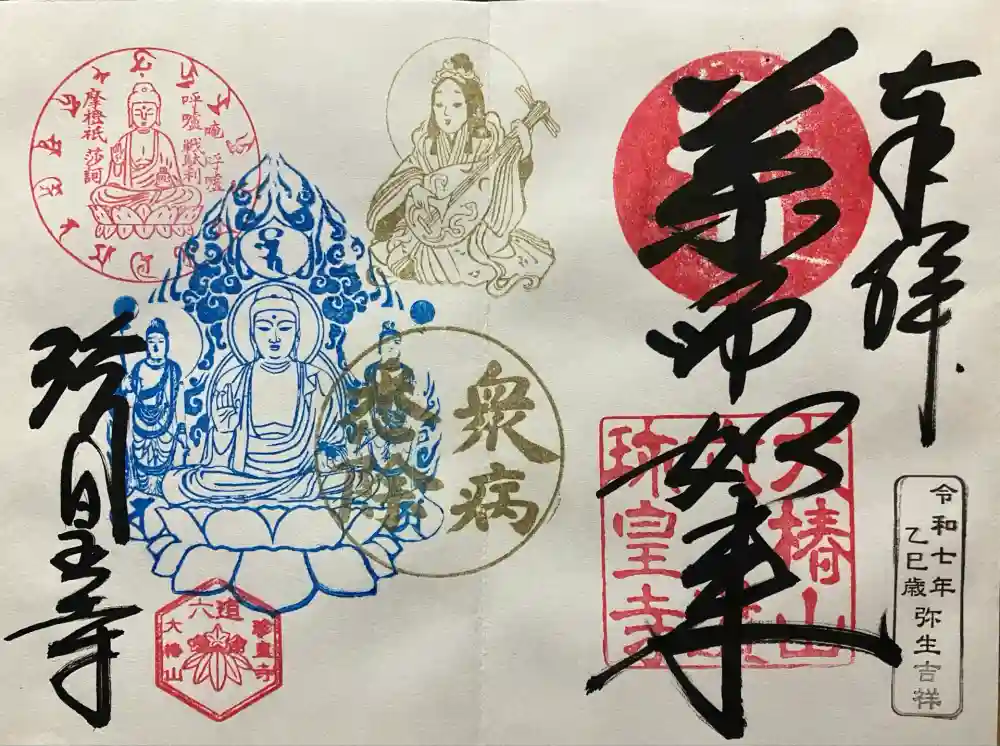 奉拝
薬師如来
大椿山
六道
珍皇寺
令和七年
乙巳歳 弥生吉祥
衆病
悉除
唵 呼嚧 呼嚧
戦駄利
摩橙祇 莎訶
六道
大椿山
珍皇寺
珍皇寺